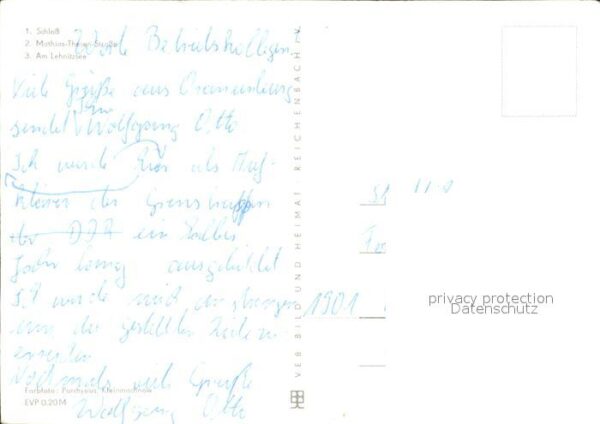 1. Schloß
2. Mathias-Thesen-Straße
3. Am Lehnitzsee
Werte Betriebskollegen
Viele Grüße aus Oranienburg
sendet Wolfgang Otto
Ich werde hier als
der Grenztruppen
der DDR ein halbes
Jahr lang ausgebildet
Ich werde mich anstrengen
um die gestellten Ziele zu
erreichen
Nochmals viele Grüße
Wolfgang Otto
Farbfoto: Parchysius, Kleinmachnow
EVP 0.20 M
VEB BILD UND HEIMAT REICHENBACH I. V.
1901
privacy protection
Datenschutz